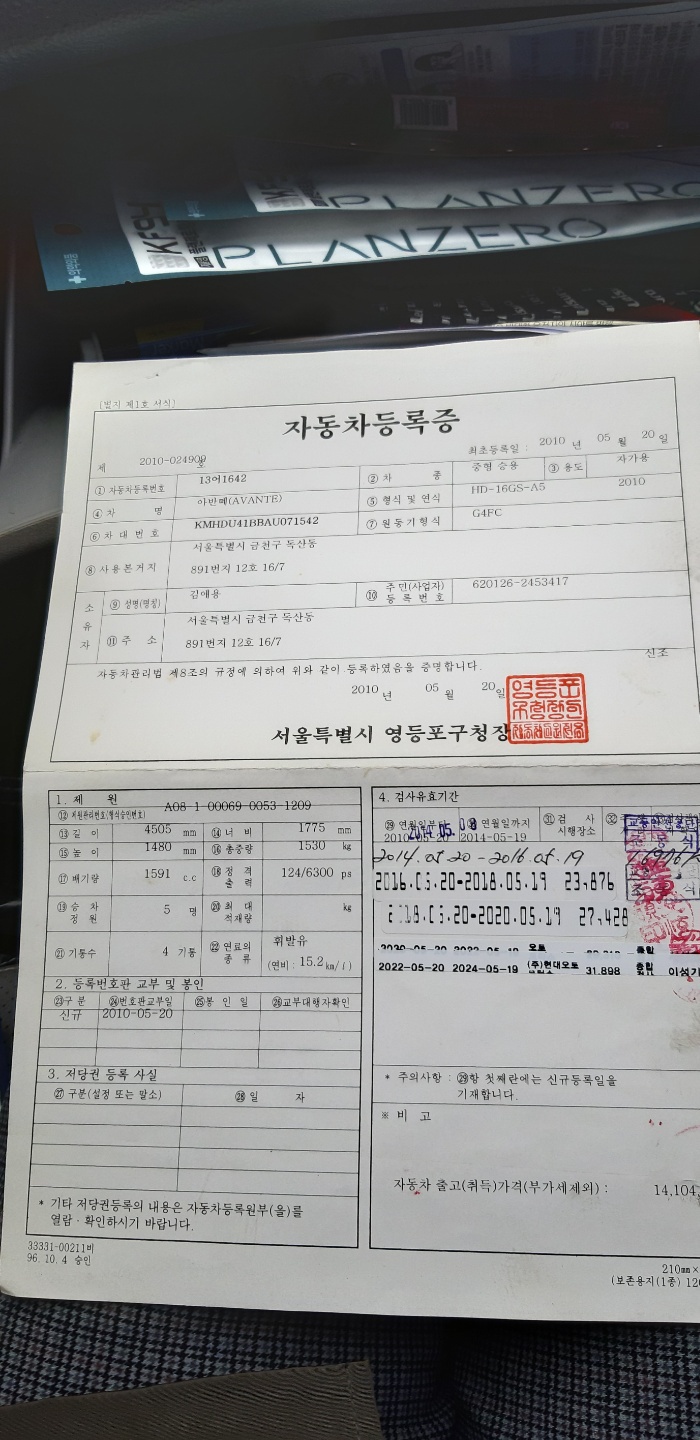 KF94
PLANZERO
PLANZERO
[별지 제1호 서식]
자동차등록증
제 2010-024909 호
최초등록일 : 2010 년 05 월 20 일
① 자동차등록번호 13어1642 ② 차 종 중형 승용 ③ 용도 자가용
④ 차 명 아반떼(AVANTE) ⑤ 형식 및 연식 HD-16GS-A5 2010
⑥ 차 대 번 호 KMHDU41BBAU071542 ⑦ 원동기형식 G4FC
⑧ 사용본거지 서울특별시 금천구 독산동
891번지 12호 16/7
소유자 ⑨ 성명(명칭) 김애용 ⑩ 주민(사업자)등록번호 620126-2453417
⑪ 주 소 서울특별시 금천구 독산동
891번지 12호 16/7
신조
자동차관리법 제8조의 규정에 의하여 위와 같이 등록하였음을 증명합니다.
2010 년 05 월 20 일
서울특별시 영등포구청장
1. 제 원
⑫ 제원관리번호(형식승인번호) A08-1-00069-0053-1209
⑬ 길 이 4505 mm ⑭ 너 비 1775 mm
⑮ 높 이 1480 mm ⑯ 총중량 1530 kg
⑰ 배기량 1591 c.c ⑱ 정격출력 124/6300 ps
⑲ 승차정원 5 명 ⑳ 최대적재량 kg
㉑ 기통수 4 기통 ㉒ 연료의 종류 휘발유
(연비 : 15.2 km/ℓ)
2. 등록번호판 교부 및 봉인
㉓구 분 ㉔번호판교부일 ㉕봉 인 일 ㉖교부대행자확인
신규 2010-05-20
3. 저당권 등록 사실
㉗ 구분(설정 또는 말소) ㉘ 일 자
* 기타 저당권등록의 내용은 자동차등록원부(을)를
열람 · 확인하시기 바랍니다.
4. 검사유효기간
㉙ 연월일부터 ㉚ 연월일까지 ㉛ 검 사 시행장소 ㉜
2010-05-20 2014-05-19
2014. 05. 20 - 2016. 05. 19
2016.05.20-2018.05.19 23,876
2018.05.20-2020.05.19 27,428
2020-05-20 2022-05-19
2022-05-20 2024-05-19 (주)현대모토 31,898 종합 이성기
* 주의사항 : ㉙항 첫째란에는 신규등록일을
기재합니다.
※ 비 고
자동차 출고(취득)가격(부가세제외) : 14,104,
33331-00211비
96. 10. 4 승인
210mm×
(보존용지(1종) 120